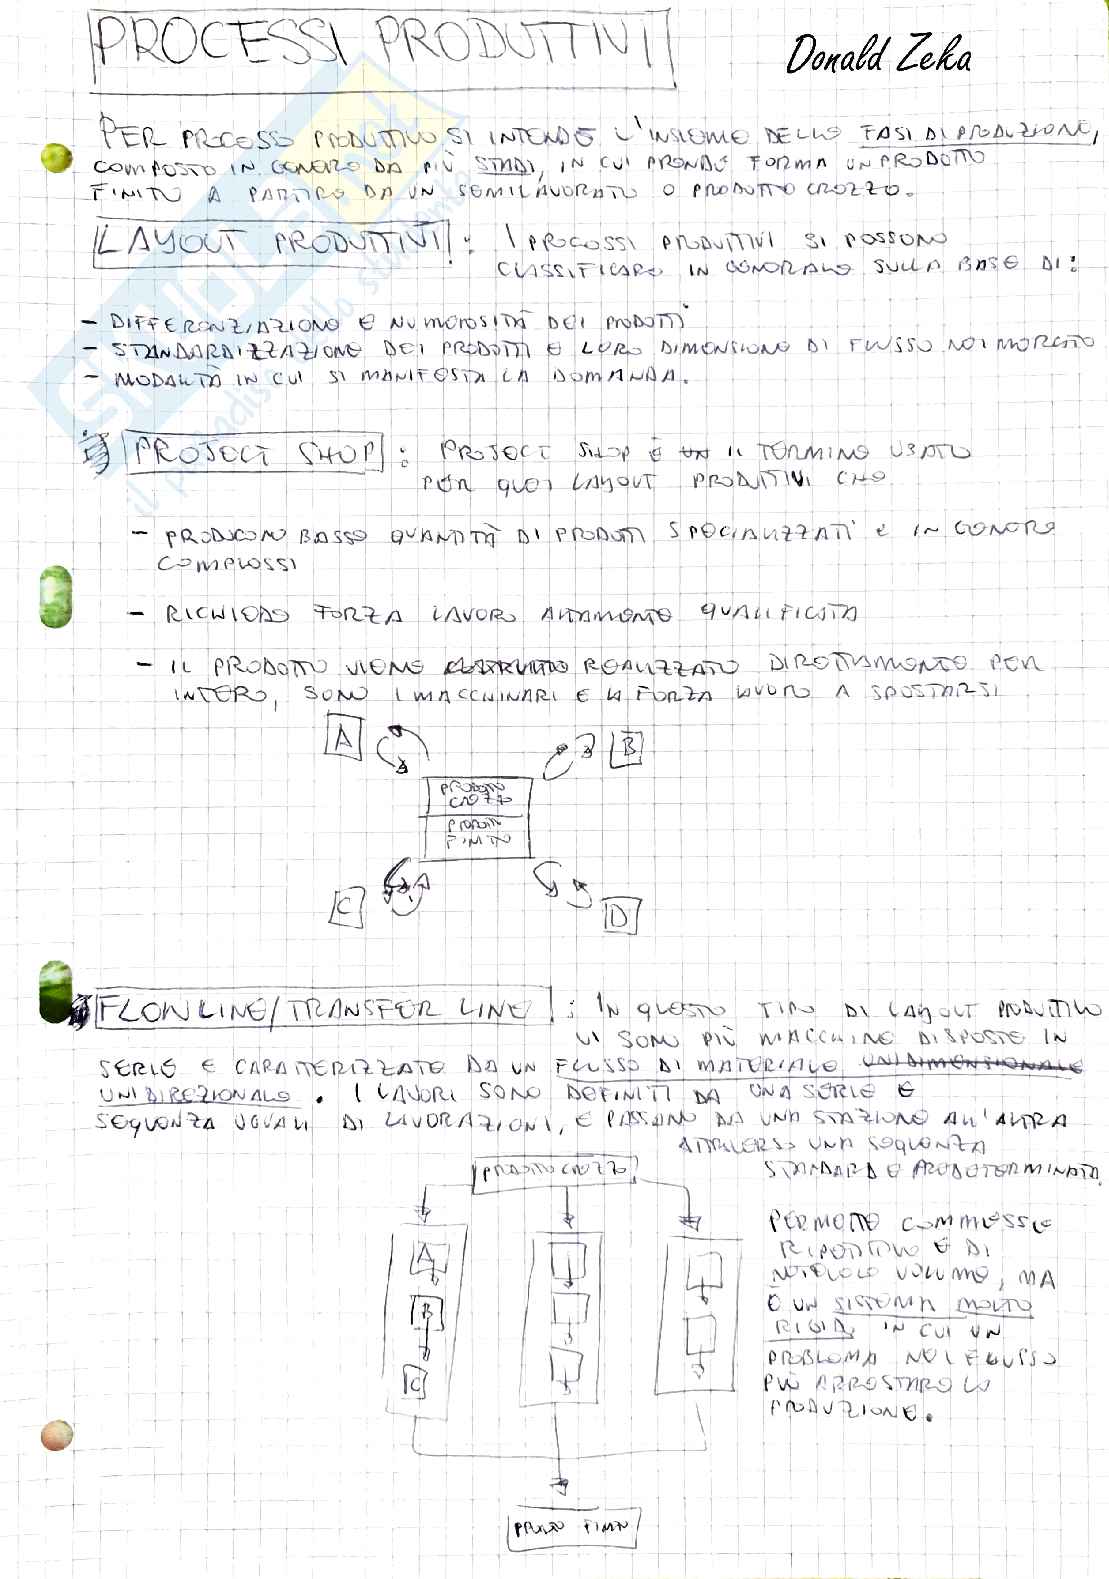 PROCESSI PRODUTTIVI
Donald Zeka
PER PROCESSO PRODUTTIVO SI INTENDE L'INSIEME DELLE FASI DI PRODUZIONE,
COMPOSTO IN GENERE DA PIÙ STADI, IN CUI PRENDE FORMA UN PRODOTTO
FINITO A PARTIRE DA UN SEMILAVORATO O PRODOTTO GREZZO.
LAYOUT PRODUTTIVI : I PROCESSI PRODUTTIVI SI POSSONO
CLASSIFICARE IN GENERALE SULLA BASE DI:
- DIFFERENZIAZIONE E NUMEROSITÀ DEI PRODOTTI
- STANDARDIZZAZIONE DEI PRODOTTI E LORO DIMENSIONE DI FLUSSO NEL MERCATO
- MODALITÀ IN CUI SI MANIFESTA LA DOMANDA.
PROJECT SHOP : PROJECT SHOP È IL TERMINE USATO
PER QUEI LAYOUT PRODUTTIVI CHE
- PRODUCONO BASSE QUANTITÀ DI PRODOTTI SPECIALIZZATI E IN GENERE
COMPLESSI
- RICHIEDE FORZA LAVORO ALTAMENTE QUALIFICATA
- IL PRODOTTO VIENE COSTRUITO REALIZZATO DIRETTAMENTE PER
INTERO, SONO I MACCHINARI E LA FORZA LAVORO A SPOSTARSI
A
B
PRODOTTO
GREZZO
PRODOTTO
FINITO
C
D
FLOW LINE/TRANSFER LINE : IN QUESTO TIPO DI LAYOUT PRODUTTIVO
VI SONO PIÙ MACCHINE DISPOSTE IN
SERIE E CARATTERIZZATE DA UN FLUSSO DI MATERIALE UNIDIMENSIONALE
UNIDIREZIONALE. I LAVORI SONO DEFINITI DA UNA SERIE E
SEQUENZA UGUALI DI LAVORAZIONI, E PASSANO DA UNA STAZIONE ALL'ALTRA
ATTRAVERSO UNA SEQUENZA
STANDARD E PREDETERMINATA.
PRODOTTO GREZZO
PERMETTE COMMESSE
RIPETITIVE E DI
NOTEVOLE VOLUME, MA
È UN SISTEMA MOLTO
RIGIDO, IN CUI UN
PROBLEMA NEL FLUSSO
PUÒ ARRESTARE LA
PRODUZIONE.
A
B
C
PRODOTTO FINITO